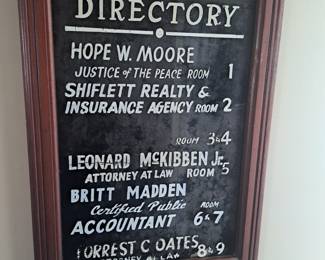 DIRECTORY
HOPE W. MOORE
JUSTICE of THE PEACE ROOM 1
SHIFLETT REALTY &
INSURANCE AGENCY ROOM 2
ROOM 3&4
LEONARD McKIBBEN Jr.
ATTORNEY AT LAW ROOM 5
BRITT MADDEN
Certified Public ROOM
ACCOUNTANT 6&7
FORREST C OATES 8&9
ATTORNEY at LAW